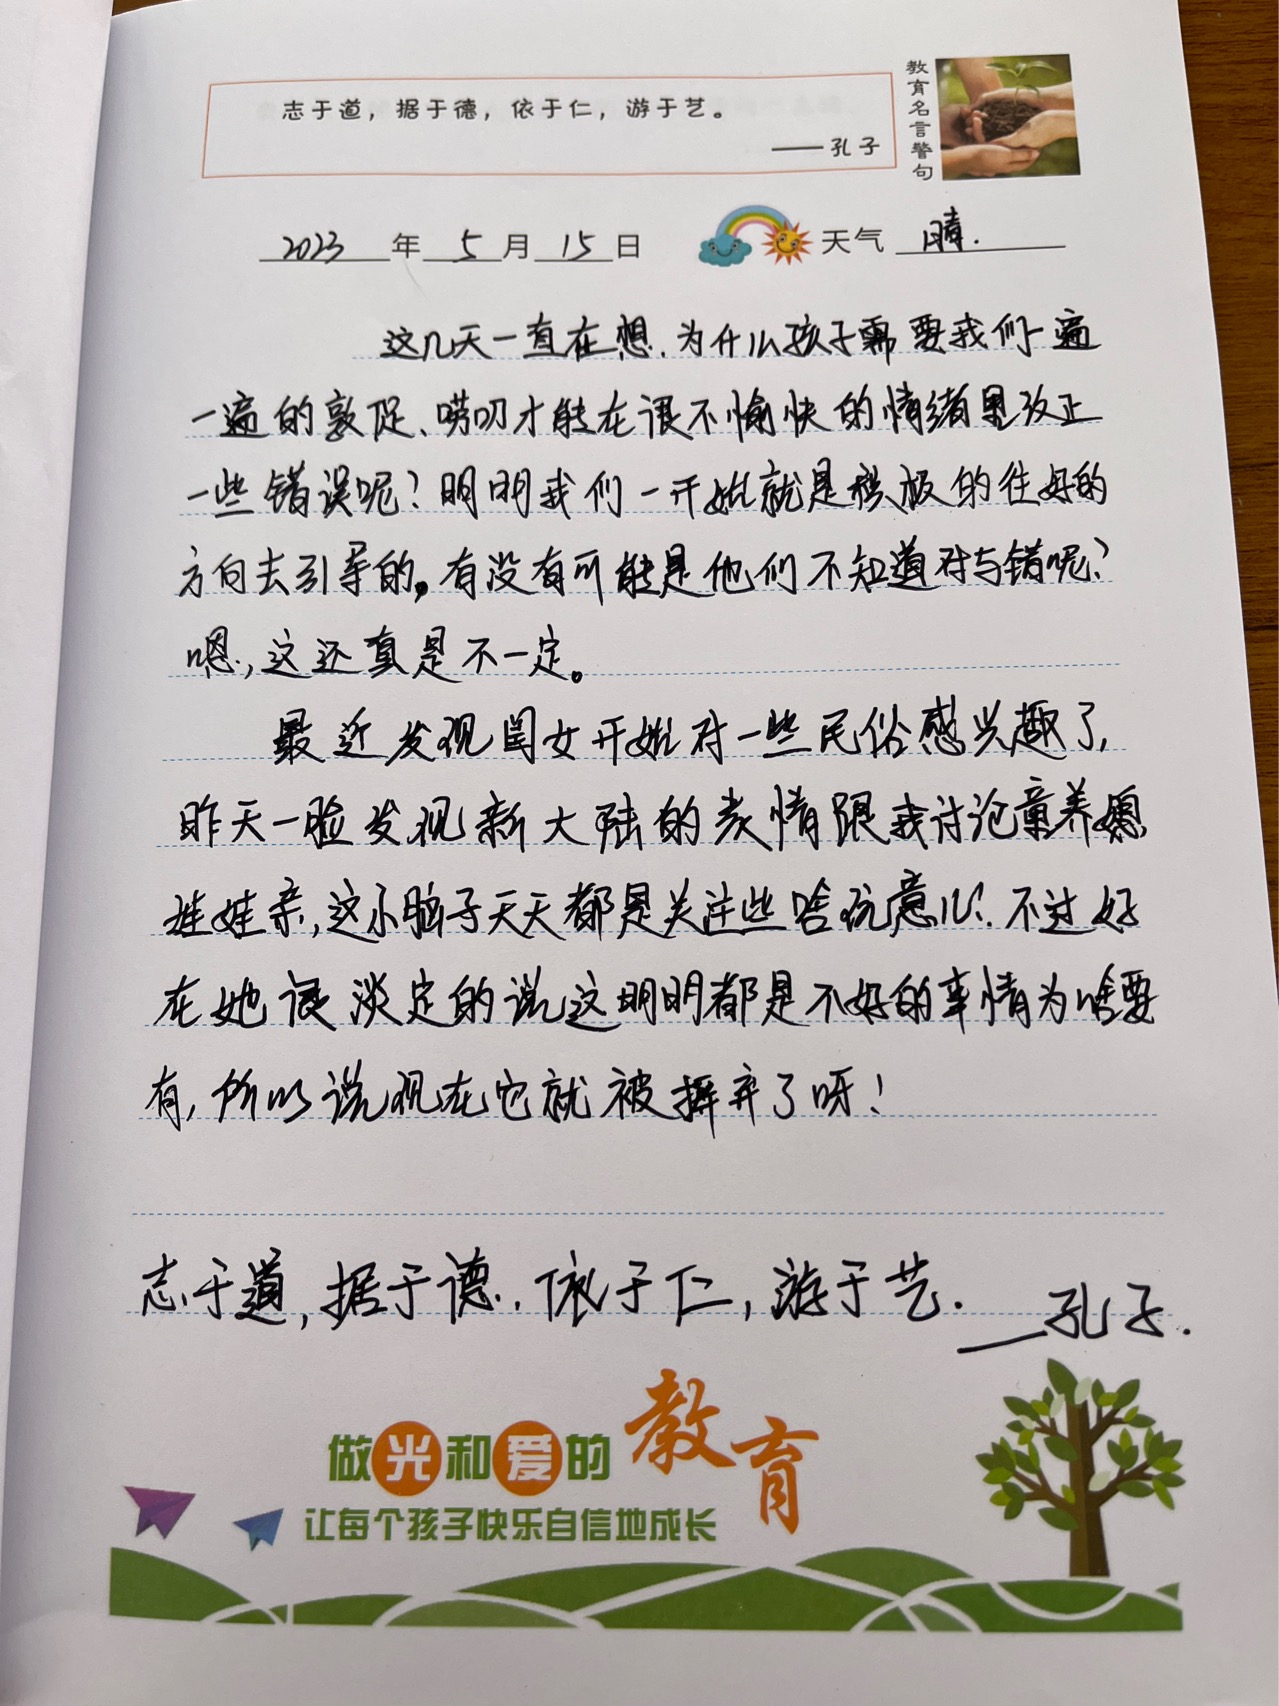 志于道，据于德，依于仁，游于艺。
——孔子
教育名言警句
2023年5月15日 天气 晴.
这几天一直在想，为什么孩子需要我们一遍
一遍的敦促、唠叨才能在很不愉快的情绪里改正
一些错误呢？明明我们一开始就是积极的往好的
方向去引导的。有没有可能是他们不知道对与错呢？
嗯，这还真是不一定。
最近发现闺女开始对一些民俗感兴趣了，
昨天一脸发现新大陆的表情跟我讨论童养媳
娃娃亲，这小脑子天天都是关注些啥玩意儿？不过好
在她很淡定的说这明明都是不好的事情为啥要
有，所以说现在它就被摒弃了呀！
志于道，据于德，依于仁，游于艺.
——孔子.
做光和爱的教育
让每个孩子快乐自信地成长